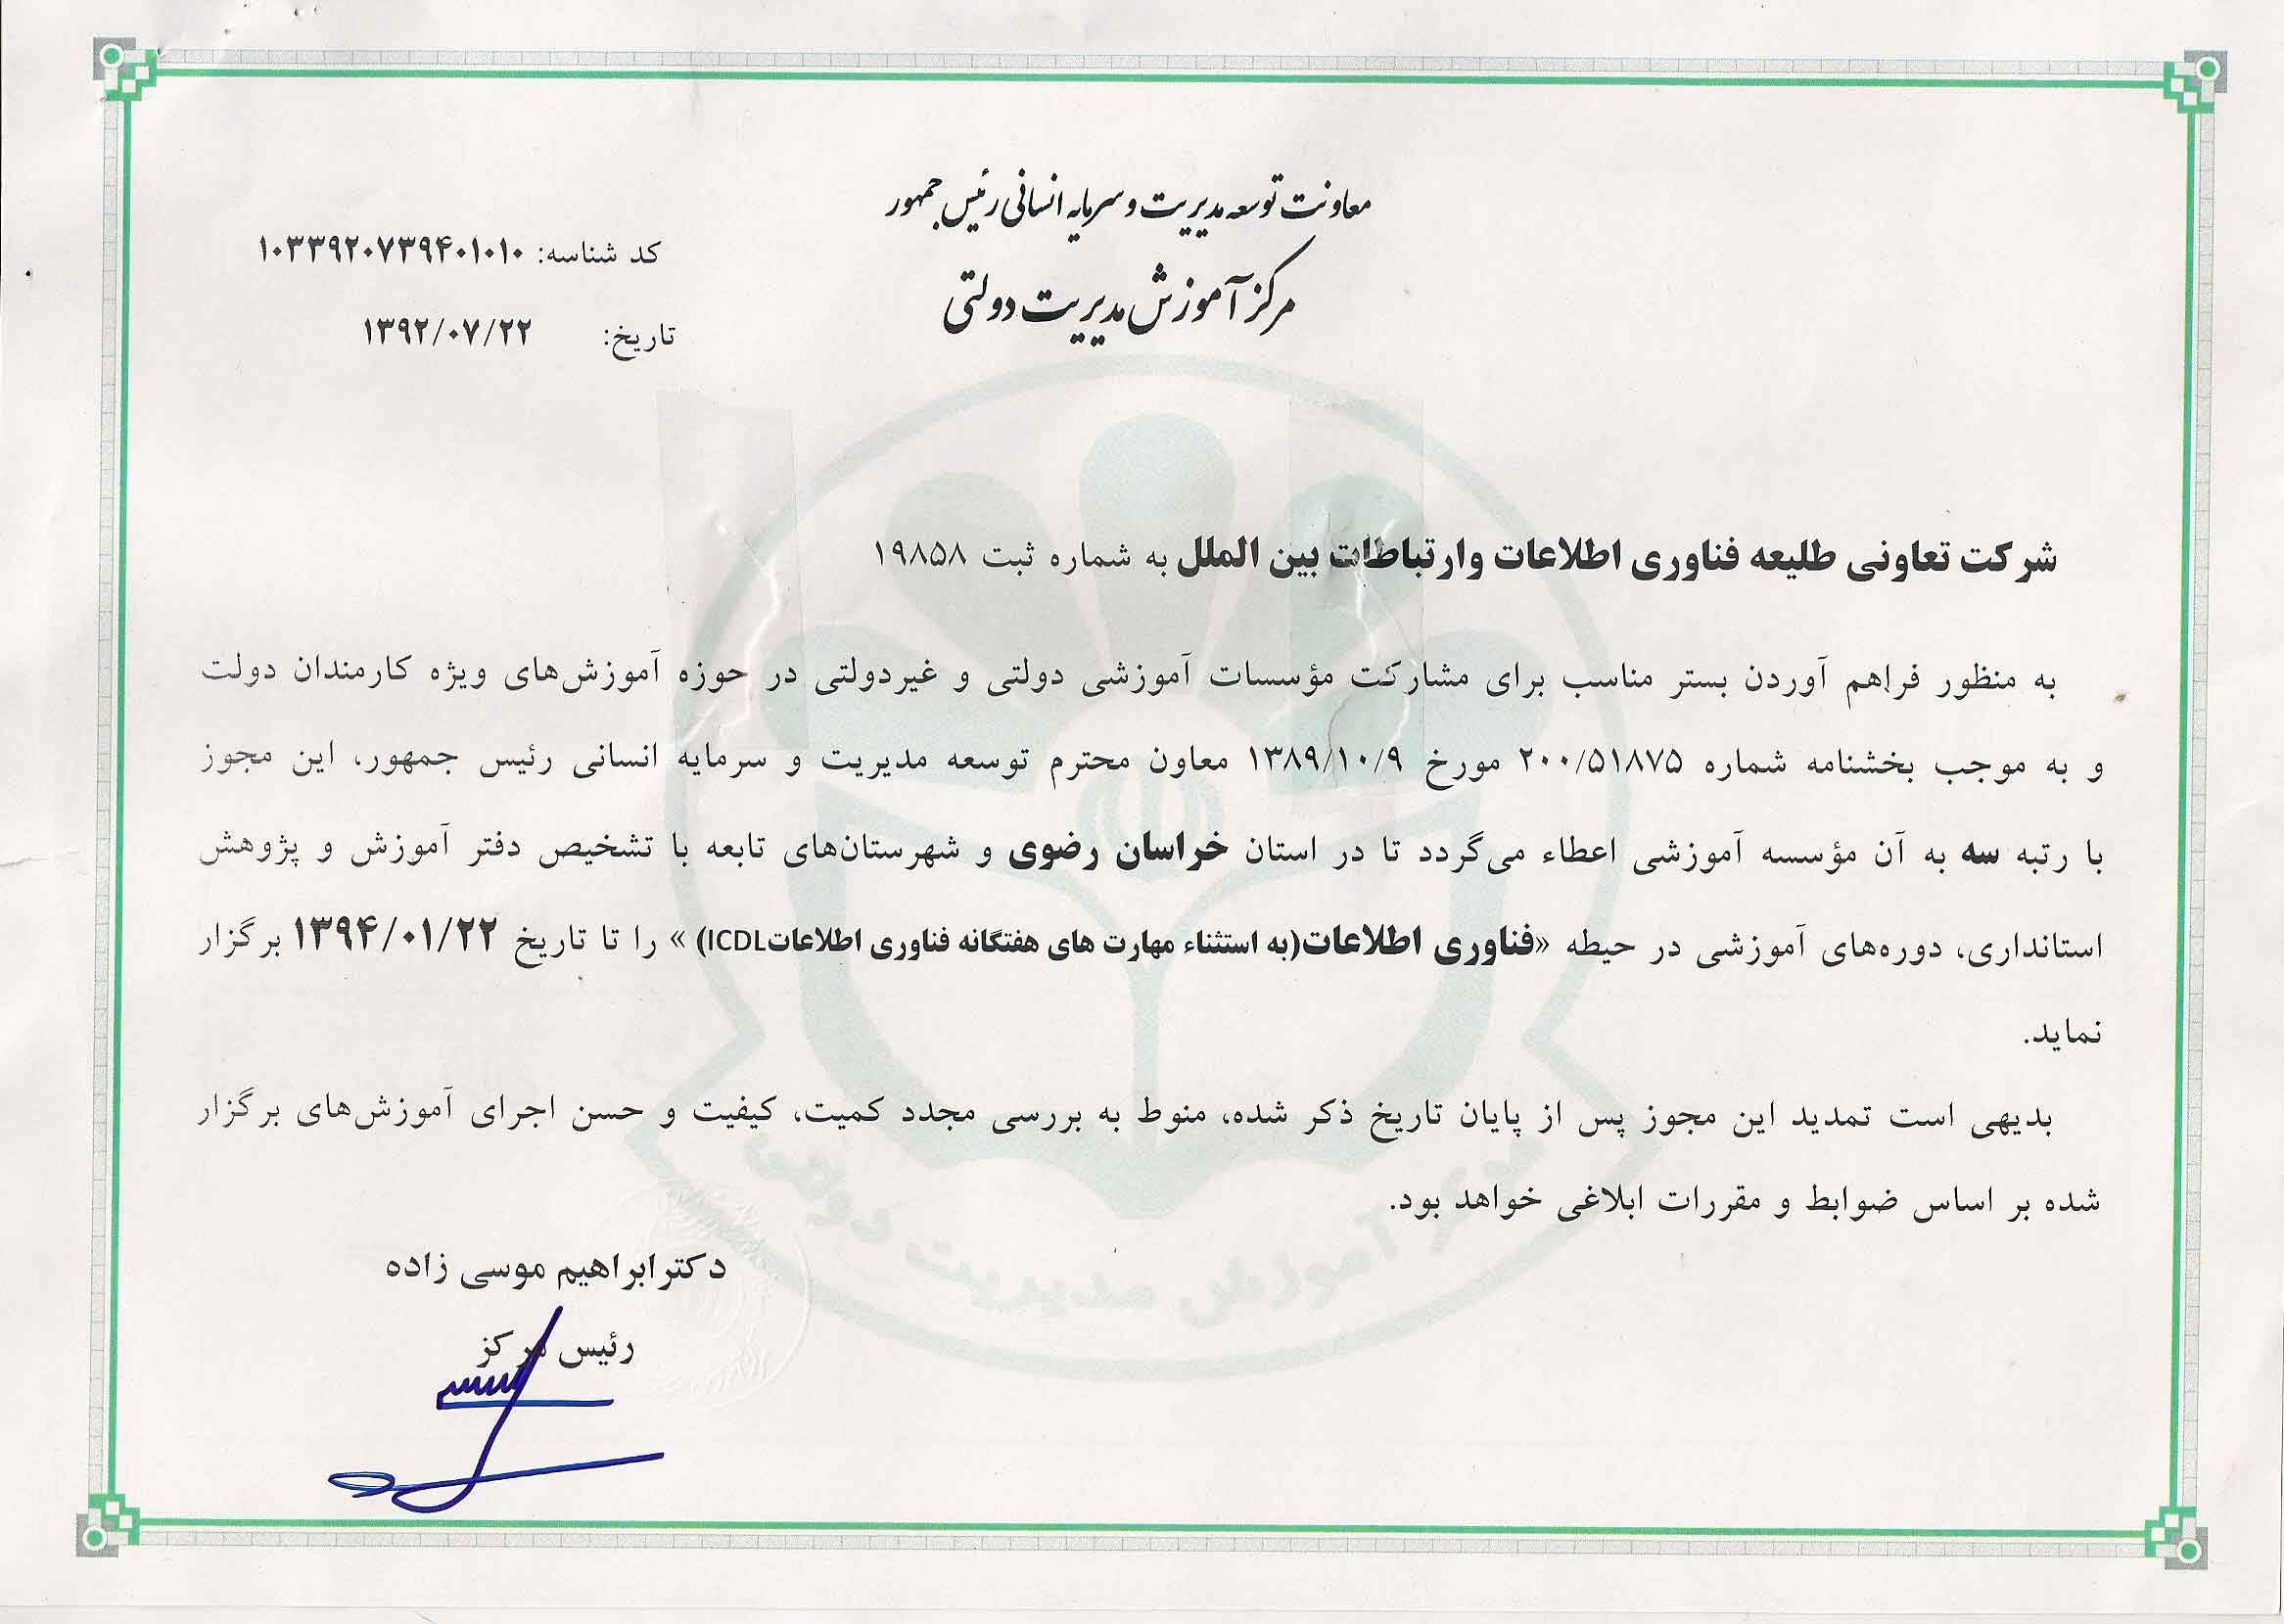 معاونت توسعه مدیریت و سرمایه انسانی رئیس جمهور
مرکز آموزش مدیریت دولتی
کد شناسه: ۱۰۳۳۹۲۰۷۳۹۴۰۱۰۱۰
تاریخ: ۱۳۹۲/۰۷/۲۲
شرکت تعاونی طلیعه فناوری اطلاعات وارتباطات بین الملل به شماره ثبت ۱۹۸۵۸
به منظور فراهم آوردن بستر مناسب برای مشارکت مؤسسات آموزشی دولتی و غیردولتی در حوزه آموزش‌های ویژه کارمندان دولت
و به موجب بخشنامه شماره ۲۰۰/۵۱۸۷۵ مورخ ۱۳۸۹/۱۰/۹ معاون محترم توسعه مدیریت و سرمایه انسانی رئیس جمهور، این مجوز
با رتبه سه به آن مؤسسه آموزشی اعطاء می‌گردد تا در استان خراسان رضوی و شهرستان‌های تابعه با تشخیص دفتر آموزش و پژوهش
استانداری، دوره‌های آموزشی در حیطه «فناوری اطلاعات(به استثناء مهارت های هفتگانه فناوری اطلاعاتICDL) » را تا تاریخ ۱۳۹۴/۰۱/۲۲ برگزار
نماید.
بدیهی است تمدید این مجوز پس از پایان تاریخ ذکر شده، منوط به بررسی مجدد کمیت، کیفیت و حسن اجرای آموزش‌های برگزار
شده بر اساس ضوابط و مقررات ابلاغی خواهد بود.
مرکز آموزش مدیریت دولتی
دکترابراهیم موسی زاده
رئیس مرکز